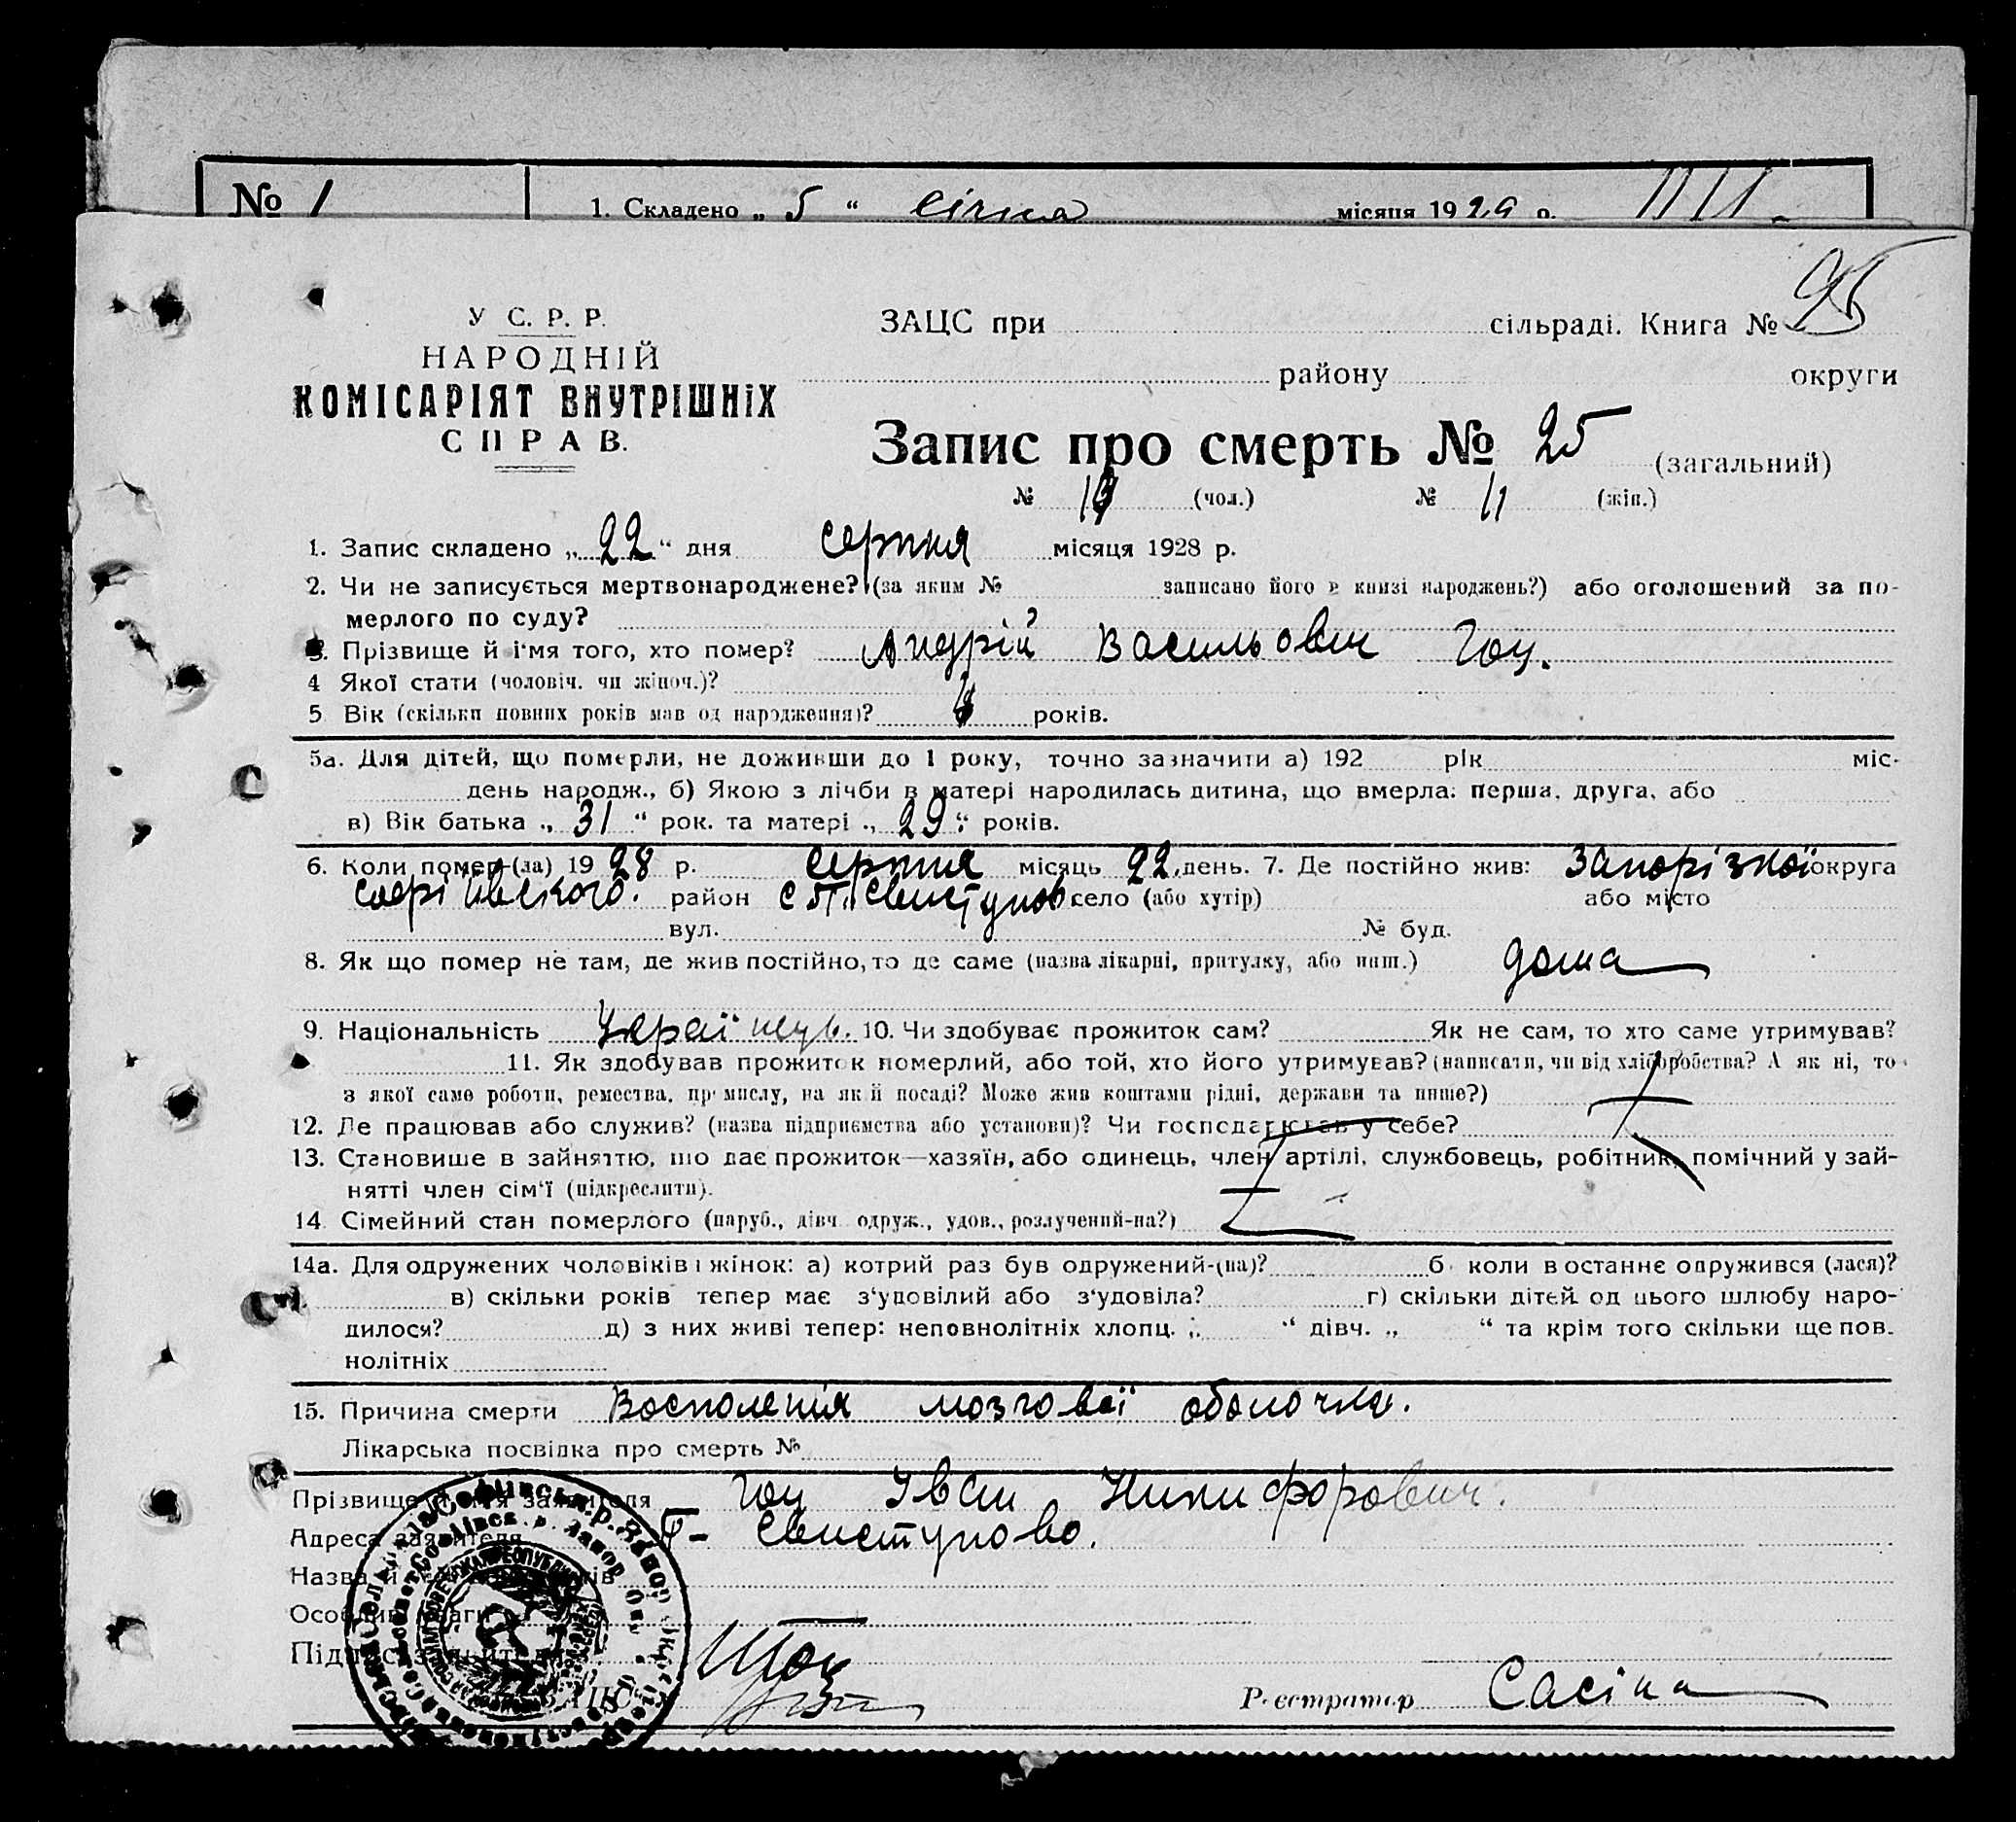 № 1 1. Складено „ 5 “ січня місяця 1929 р.
95
У С. Р. Р.
НАРОДНІЙ
КОМІСАРІЯТ ВНУТРІШНіХ
СПРАВ.
ЗАЦС при сільраді. Книга №
району округи
Запис про смерть № 25 (загальний)
№ (чол.) № 11 (жін.)
1. Запис складено „ 22 “ дня серпня місяця 1928 р.
2. Чи не записується мертвонароджене? (за яким № записано його в книзі народжень?) або оголошений за по-
мерлого по суду?
3. Прізвище й ім'я того, хто помер? Андрій Васильович Гоц.
4 Якої стати (чоловіч. чи жіноч.)?
5 Вік (скільки повних років мав од народження)? років.
5а. Для дітей, що померли, не доживши до 1 року, точно зазначити а) 192 рік міс-
день народж., б) Якою з лічби в матері народилась дитина, що вмерла: перша, друга, або
в) Вік батька „ 31 “ рок. та матері „ 29 “ років.
6. Коли помер-(ла) 1928 р. серпня місяць 22 день. 7. Де постійно жив: Запорізкої округа
район село (або хутір) або місто
вул. № буд.
8. Як що помер не там, де жив постійно, то де саме (назва лікарні, притулку, або инш.) дома
9. Національність 10. Чи здобуває прожиток сам? Як не сам, то хто саме утримував?
11. Як здобував прожиток померлий, або той, хто його утримував? (написати, чи від хліборобства? А як ні, то
з якої саме роботи, ремества, промислу, на якій посаді? Може жив коштами рідні, держави та инше?)
12. Де працював або служив? (назва підприємства або установи)? Чи господарював у себе?
13. Становище в зайняттю, що дає прожиток—хазяїн, або одинець, член артілі, службовець, робітник, помічний у зай-
нятті член сім'ї (підкреслити).
14. Сімейний стан померлого (паруб., дівч. одруж., удов., розлучений-на?)
14а. Для одружених чоловіків і жінок: а) котрий раз був одружений-(на)? б коли востаннє одружився (лася)?
в) скільки років тепер має з'удовілий або з'удовіла? г) скільки дітей од цього шлюбу наро-
дилося? д) з них живі тепер: неповнолітніх хлопц. „ “ дівч. „ “ та крім того скільки ще пов-
нолітніх
15. Причина смерти Восполения мозгової оболочки.
Лікарська посвідка про смерть №
Прізвище й ім'я заявителя Гоц Іван Никифорович.
Адреса заявителя Свистуново.
Назва й
Особливі уваги
Підпис заявителя Гоц
ЗАЦС Реєстратор Сасіна